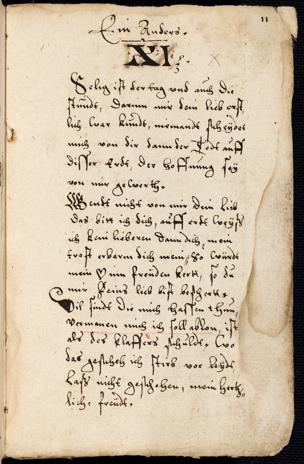 11
Ein Anders.
XI.
Selig ist der tag und auch die
stundt, darinn mir dein lieb erst
lich war kundt, niemandt scheydet
mich von dir dann der Todt auff
disser Erdt, der hoffnung sey
von mir gewerth.
Wendt nicht von mir dein lieb
das bitt ich dich, auff erdt weyß
ich kein lieberen dann dich, mein
trost erbarm dich mein, So würdt
mein in freuden kert, so du
mir deins lieb bist beschert.
Vil sindt die mich hassen thun,
vermanen mich ich soll ablon, ist
als der klaffers schuldt. Wo
das geschech ich stirb vor leydt
laß nicht geschehen, mein hertz
liche freudt.